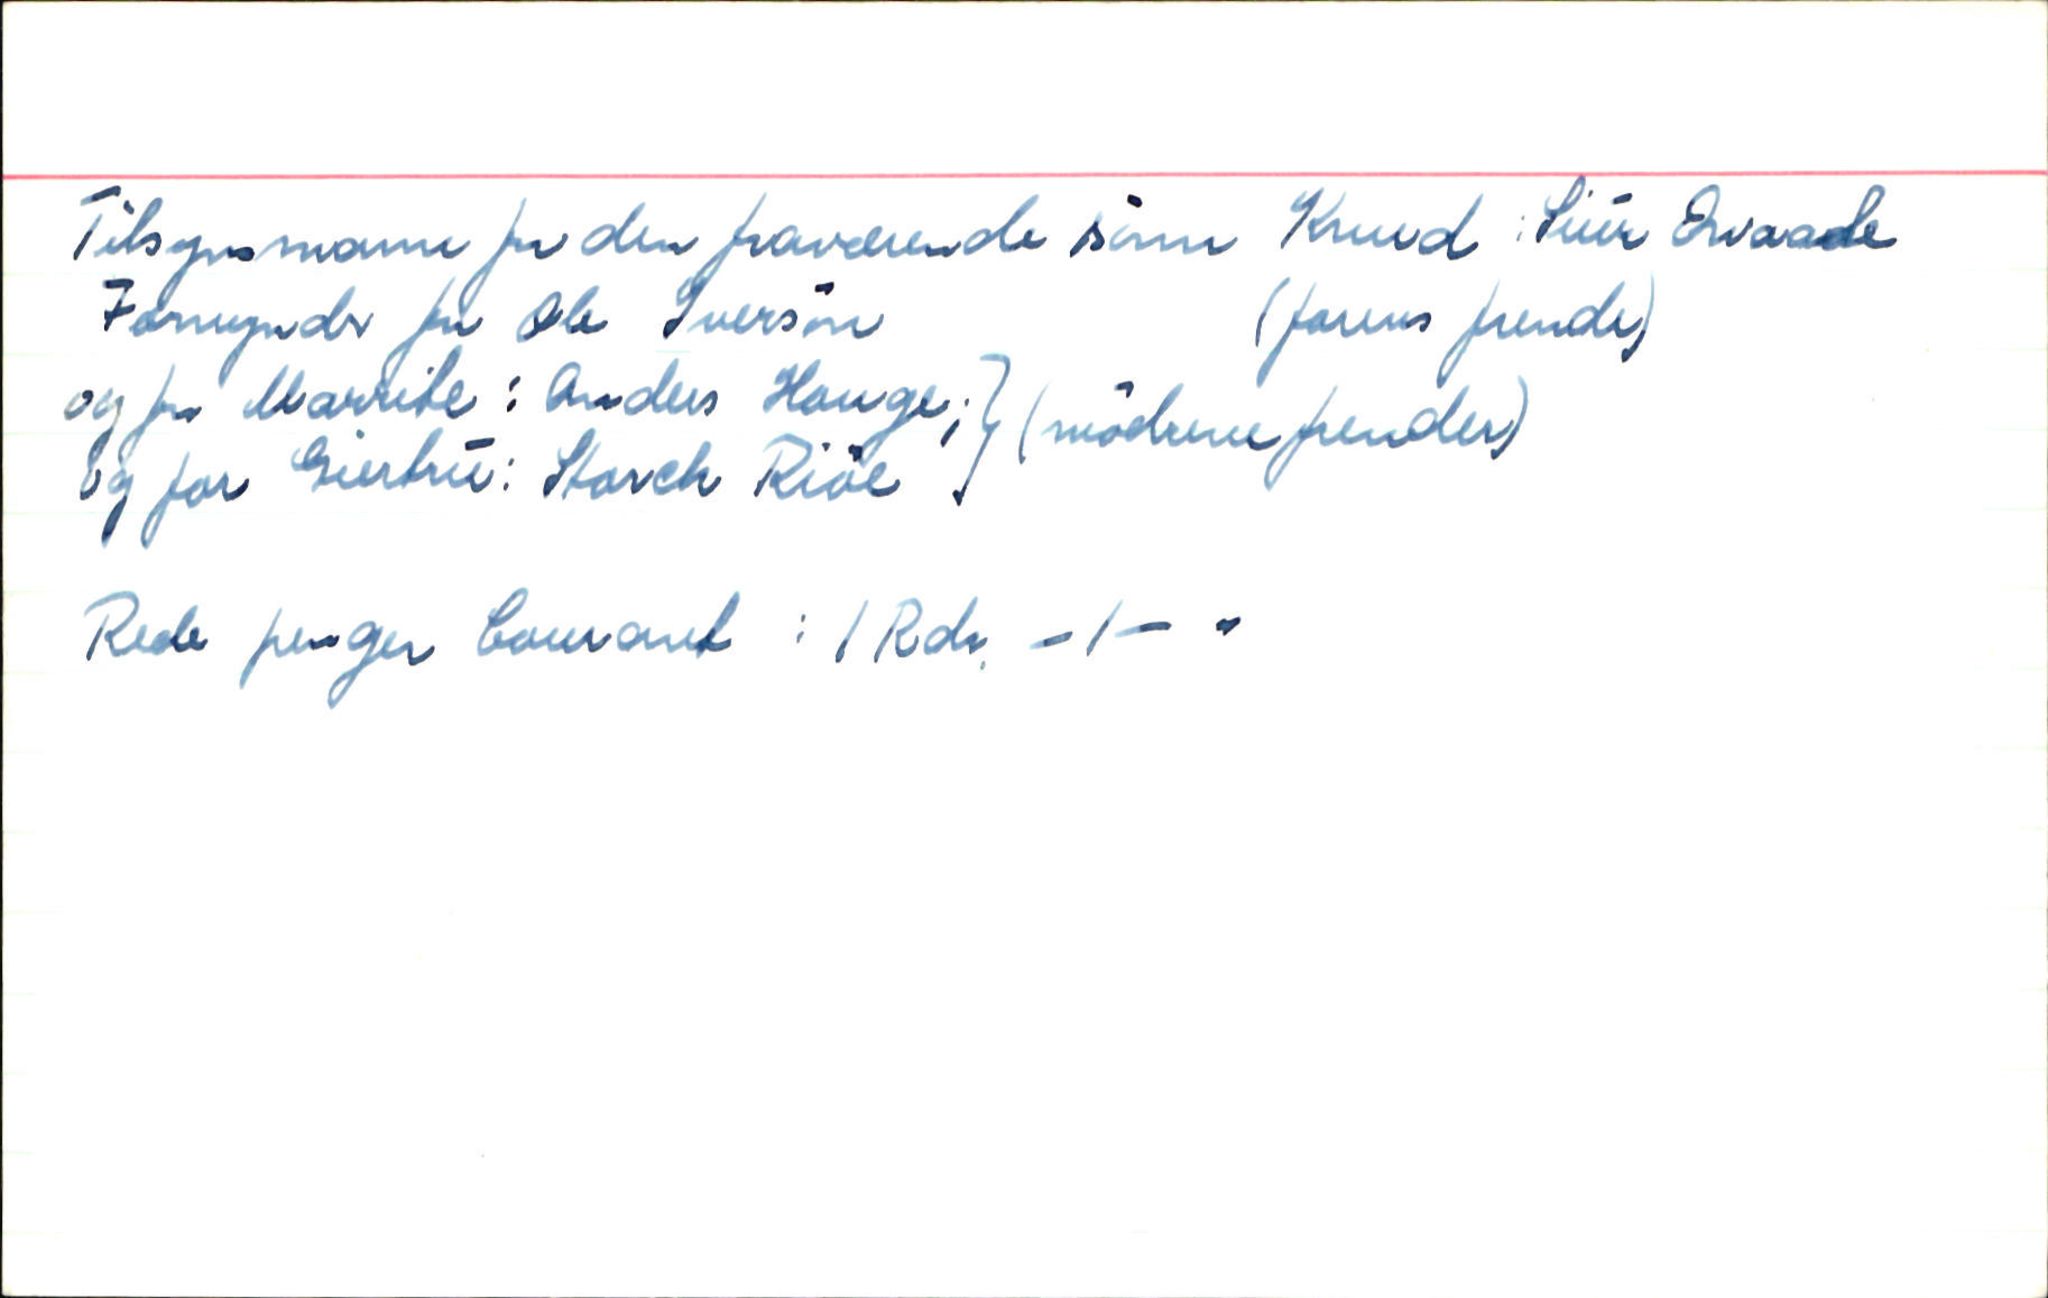 Tilsynsmann for den fraværende sönn Knud : Siür Qwaade
Formynder for Ole Iversön (farens frende)
og for Marrite : Anders Hauge; } (mödrene frender)
og for Giertrü : Storch Riöe
Rede penger Courant : 1 Rdr. - 1 - "